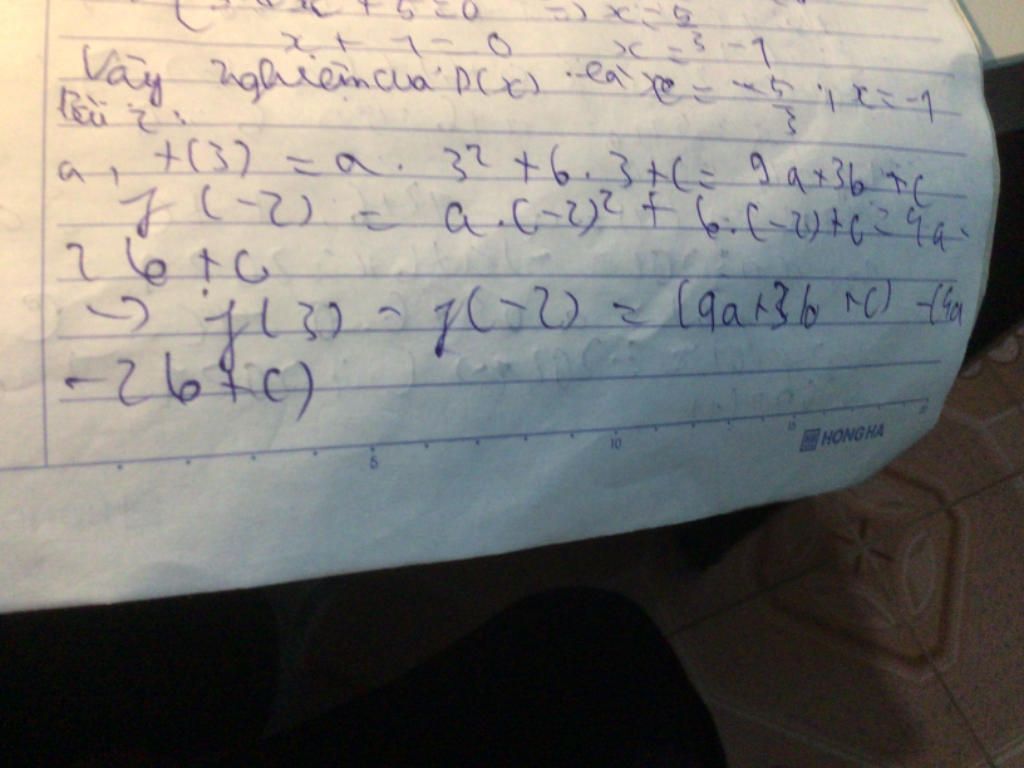 x + 5 = 0 => x = 5/3
x + 1 = 0 x = -1
Vậy nghiệm của P(x) là x = -5/3 ; x = -1
Bài 2:
a, f(3) = a . 3² + b . 3 + c = 9a + 3b + c
f(-2) = a.(-2)² + b.(-2) + c = 4a -
2b + c
-> f(3) - f(-2) = (9a + 3b + c) - (4a
- 2b + c)
5 10 15 20
HONG HA